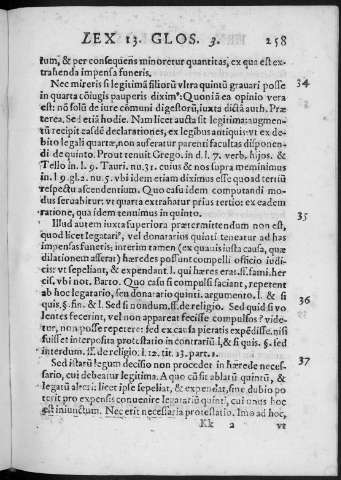 LEX 13. GLOS. 3. 258
tum, & per consequens minoretur quantitas, ex qua est ex-
trahenda impensa funeris.
Nec mireris si legitimã filiorũ vltra quintũ grauari posse 34
in quarta cõiugis pauperis dixim⁹: Quoniã ea opinio vera
est: nõ solũ de iure cõmuni digestorũ, iuxta dictã auth. Præ
terea. Sed etiã hodie. Nam licet aucta sit legitima: augmen-
tũ recipit easdẽ declarationes, ex legibus antiquis: vt ex de-
bito legali quartæ, non auferatur parenti facultas disponen-
di de quinto. Prout tenuit Grego. in d. l. 7. verb. hijos. &
Tello in l. 9. Tauri. nu. 31. cuius & nos supra meminimus
in l 9 gl.2. nu. 5. vbi idem etiam diximus esse quo ad tertiũ
respectu ascendentium. Quo casu idem computandi mo-
dus seruabitur: vt quarta extrahatur prias tertio: ex eadem
ratione, qua idem tenuimus in quinto. 35
Illud autem iuxta superiora prætermittendum non est,
quod licet legatari⁹, vel donatarius quinti teneatur ad has
impensas funeris; interim tamen (ex quauis iusta causa, quæ
dilationem asserat) hæredes possunt compelli officio iudi-
cis: vt sepeliant, & expendant. l. qui hæres eras. ff. fami. her
cis. vbi not. Barto. Quo casu si compulsi faciant, repetent
ab hoc legatario, seu donatario quinti. argumento. l. & si 36
quis. §. fin. & l. Sed si nondum. ff. de religio. Sed quid si vo
lentes fecerint, vel non appareat fecisse compulsos? vide-
tur, non posse repetere: sed ex causa pietatis expẽdisse. nisi
fuisset interposita protestatio in contrariũ. l. & si quis. §. sed
interdum. ff. de religio. l. 12. tit. 13. part. 1.
Sed istarũ legum decisio non procedet in hærede neces- 37
sario, cui debeatur legitima. A quo cũ sit ablatũ quintũ, &
legatũ alteri: licet ipse sepeliat, & expendat, sine dubio po
terit pro expensis conuenire legatariũ quinti, cui onus hoc
est iniunctum. Nec erit necessaria protestatio. Imo ad hoc,
Kk 2 vt